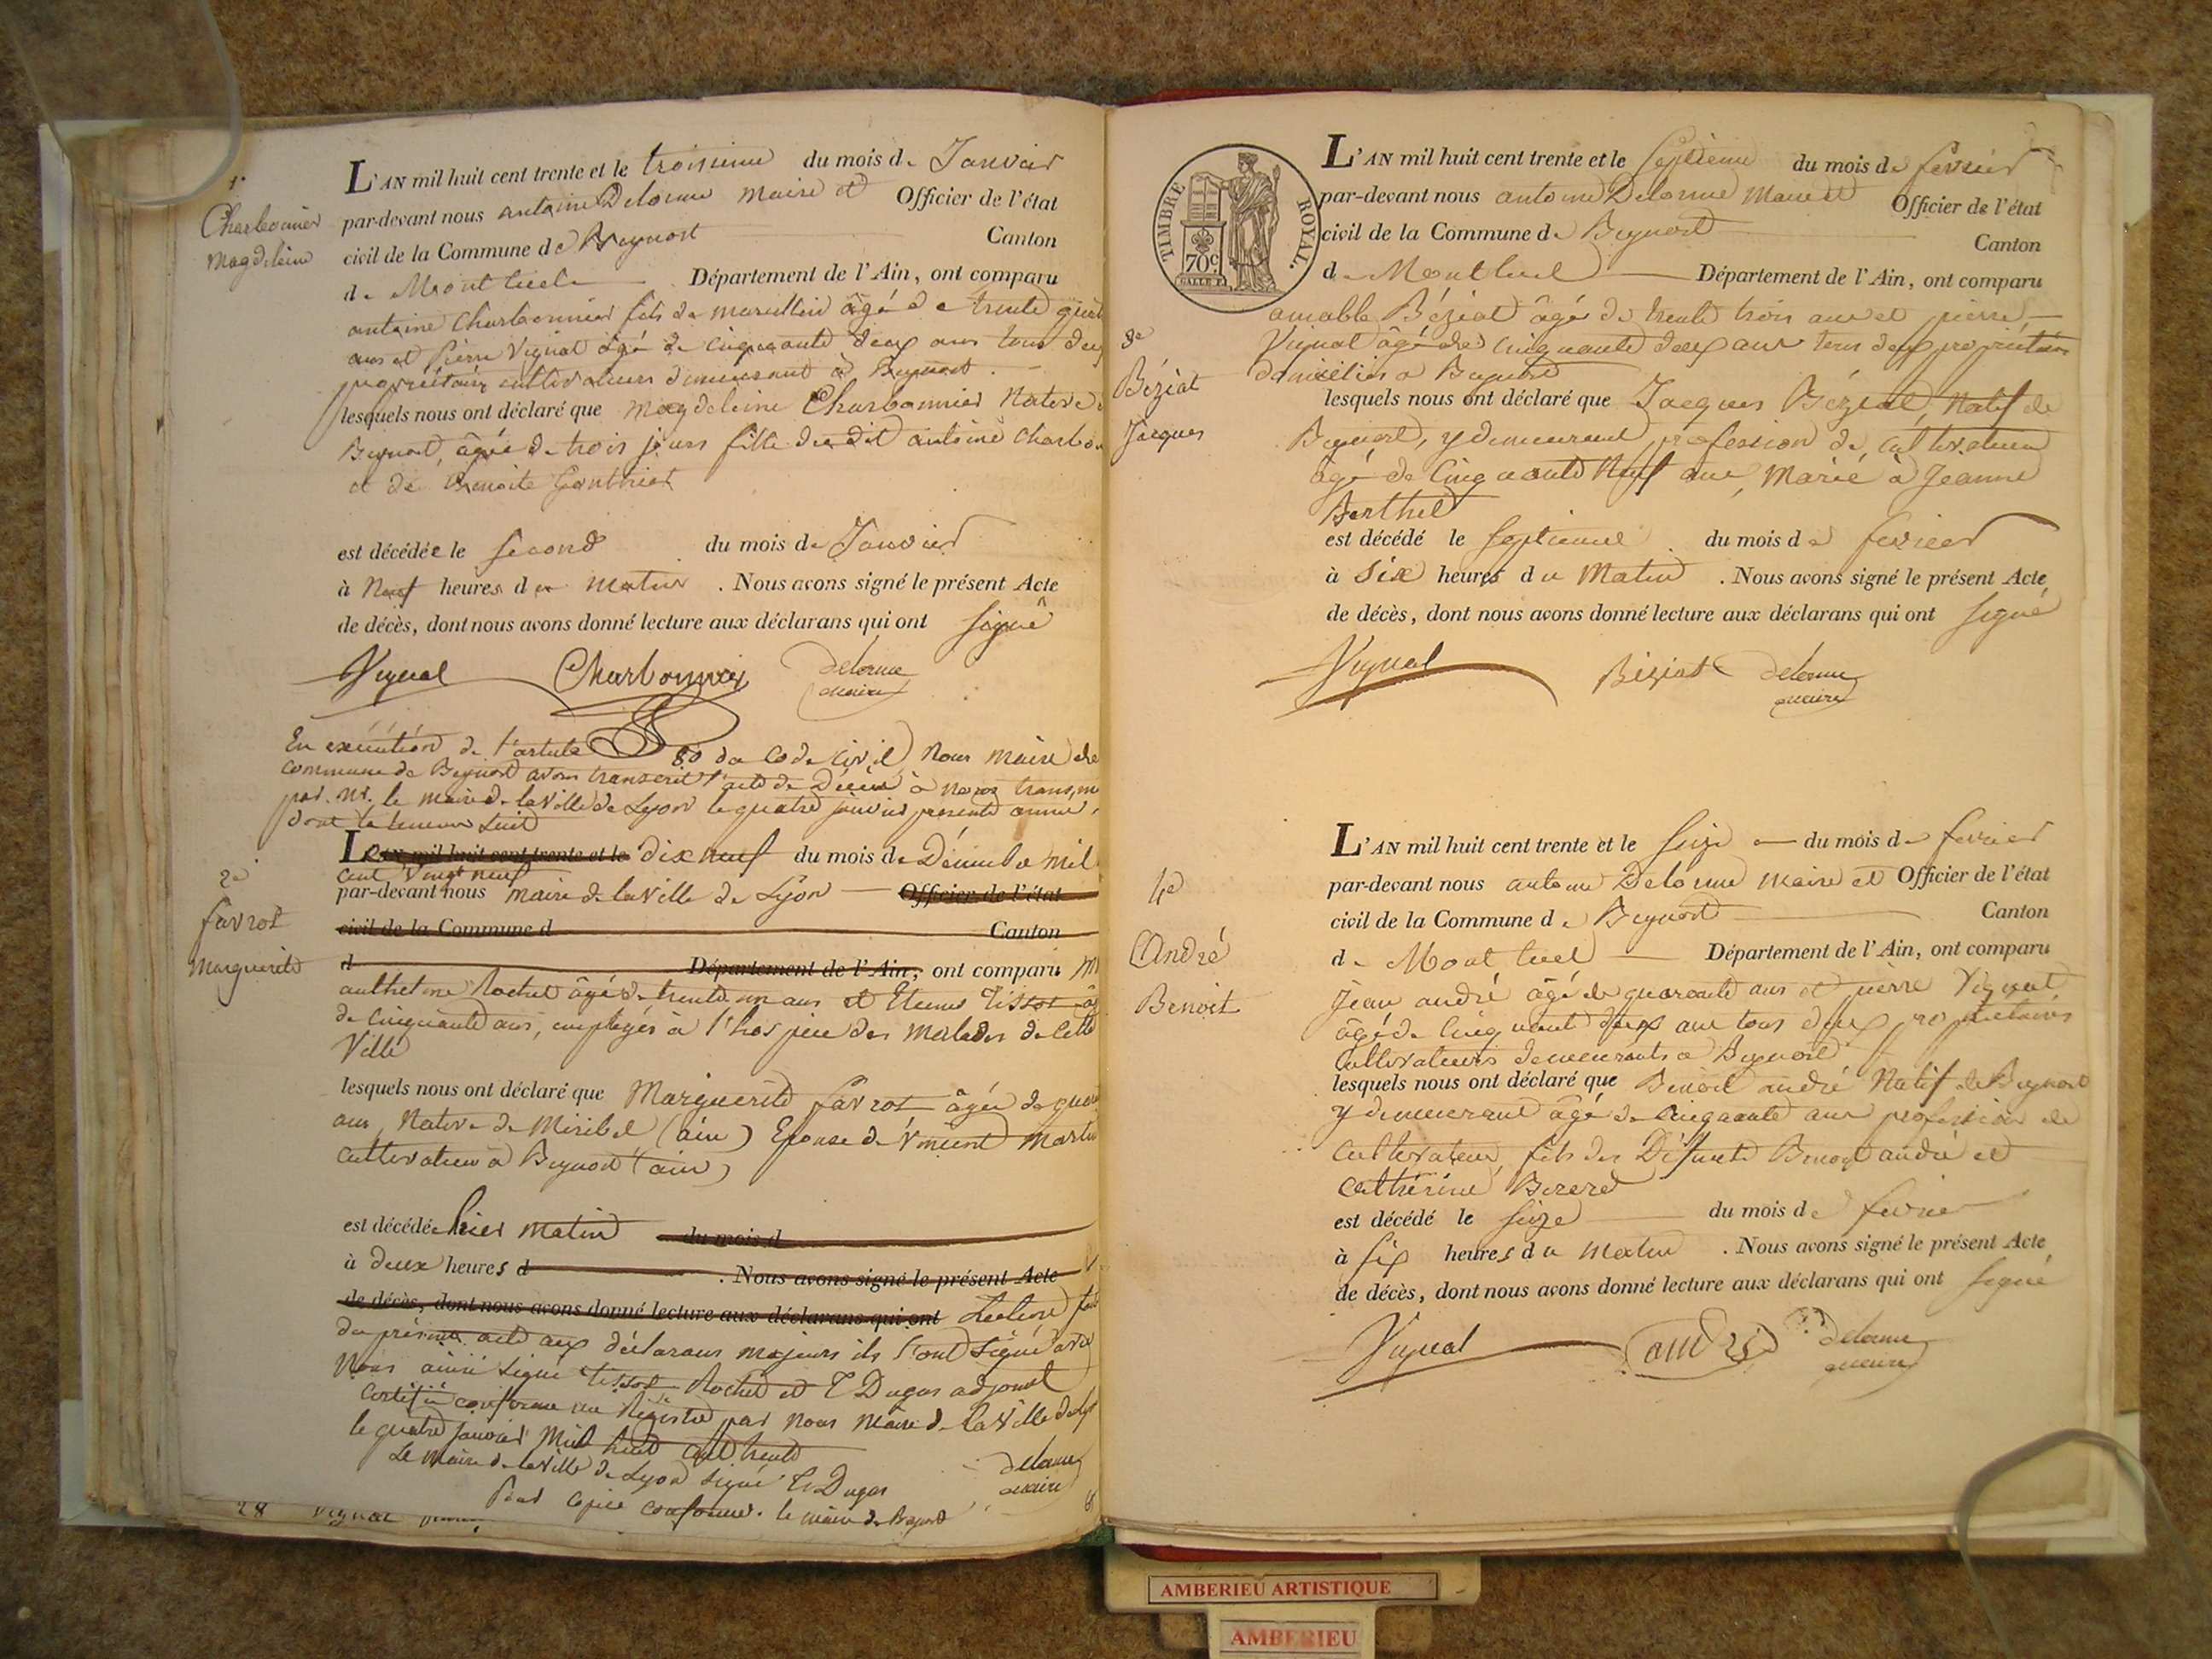 1.
Charbonnier
Magdeleine
L'AN mil huit cent trente et le troisieme du mois de Janvier
par-devant nous antoine Delorme Maire et Officier de l'état
civil de la Commune de Beynost Canton
de Montluel Département de l'Ain, ont comparu
antoine Charbonnier fils de marcellin âgé de trente
ans et Pierre Vignat âgé de cinquante deux ans tous deux
propriétaires cultivateurs demeurant à Beynost.
lesquels nous ont déclaré que Magdeleine Charbonnier Native
Beynost, âgée de trois jours fille du dit antoine Charbon
et de Benoite
est décédée le second du mois de Janvier
à Neuf heures du matin. Nous avons signé le présent Acte
de décès, dont nous avons donné lecture aux déclarans qui ont signé
Vignat Charbonnier delorme
maire
En exécution de l'article 80 du Code Civil, Nous Maire de
commune de Beynost avons transcrit l'acte de Décès à nous transmi
par Mr. le maire de la Ville de Lyon le quatre janvier presente année,
dont la teneur suit
2e
favrot
Marguerite
Le AN mil huit cent trente et le dix neuf du mois de Décembre mil
cent vingt neuf
par-devant nous maire de la Ville de Lyon Officier de l'état
civil de la Commune d Canton
d Département de l'Ain, ont comparu
anthelme Rochet âgé de trente un ans et Etienne Tissot âg
de cinquante ans, employés à l'hospice des Malades de cette
Ville
lesquels nous ont déclaré que Marguerite favrot âgée de
ans, Native de Miribel (ain) Epouse de Vincent Martin
cultivateur à Beynost (ain)
est décédée hier matin du mois d
à deux heures d . Nous avons signé le présent Acte
de décès, dont nous avons donné lecture aux déclarans qui ont Lecture
du présent acte aux déclarans majeurs ils l'ont signé avec
Nous ainsi signé Tissot Rochet et T Dugas adjoint
Certifié conforme au Régistre par Nous Maire de la Ville de
le quatre janvier Mil huit cent trente
Le Maire de la Ville de Lyon signé T Dugas
Pour copie conforme. le maire de Beynost
delorme
maire
28 Vignat
TIMBRE ROYAL.
70 c.
L'AN mil huit cent trente et le Septieme du mois de fevrier
par-devant nous antoine Delorme Maire et Officier de l'état
civil de la Commune de Beynost Canton
de Montluel Département de l'Ain, ont comparu
3e
Béziat
Jacques
amable Béziat âgé de trente trois ans et pierre
Vignat âgé de cinquante deux ans tous deux propriétaires
domiciliés à Beynost
lesquels nous ont déclaré que Jacques Béziat, Natif de
Beynost, y demeurant profession de cultivateur
âgé de Cinquante Neuf ans, Marié à Jeanne
Berthet
est décédé le septieme du mois de fevrier
à Six heures du Matin. Nous avons signé le présent Acte
de décès, dont nous avons donné lecture aux déclarans qui ont signé
Vignat Béziat delorme
maire
4e
André
Benoit
L'AN mil huit cent trente et le Seize du mois de fevrier
par-devant nous antoine Delorme Maire et Officier de l'état
civil de la Commune de Beynost Canton
de Montluel Département de l'Ain, ont comparu
Jean andré âgé de quarante ans et pierre Vignat
âgé de Cinquante deux ans tous deux propriétaires
Cultivateurs demeurants à Beynost
lesquels nous ont déclaré que Benoit andré Natif de Beynost
y demeurant âgé de cinquante ans profession de
Cultivateur, fils des Défunts Benoit andré et
catherine
est décédé le Seize du mois de fevrier
à Six heures du matin. Nous avons signé le présent Acte
de décès, dont nous avons donné lecture aux déclarans qui ont signé
Vignat andré delorme
maire
AMBERIEU ARTISTIQUE
AMBERIEU